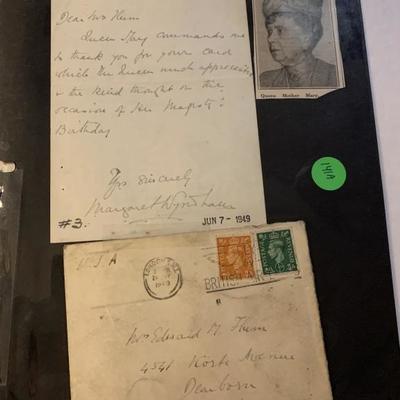 Dear Mrs Flum
Queen Mary commands me
to thank you for your card
which the Queen much appreciates
& the kind thought on the
occasion of Her Majesty's
Birthday
Yrs sincerely
Margaret
#3.
JUN 7 - 1949
Queen Mother Mary
141A
U.S.A
LONDON
1949
BRITISH
POSTAGE REVENUE
Mrs Edward M. Flum
4541 Avenue
Dearborn